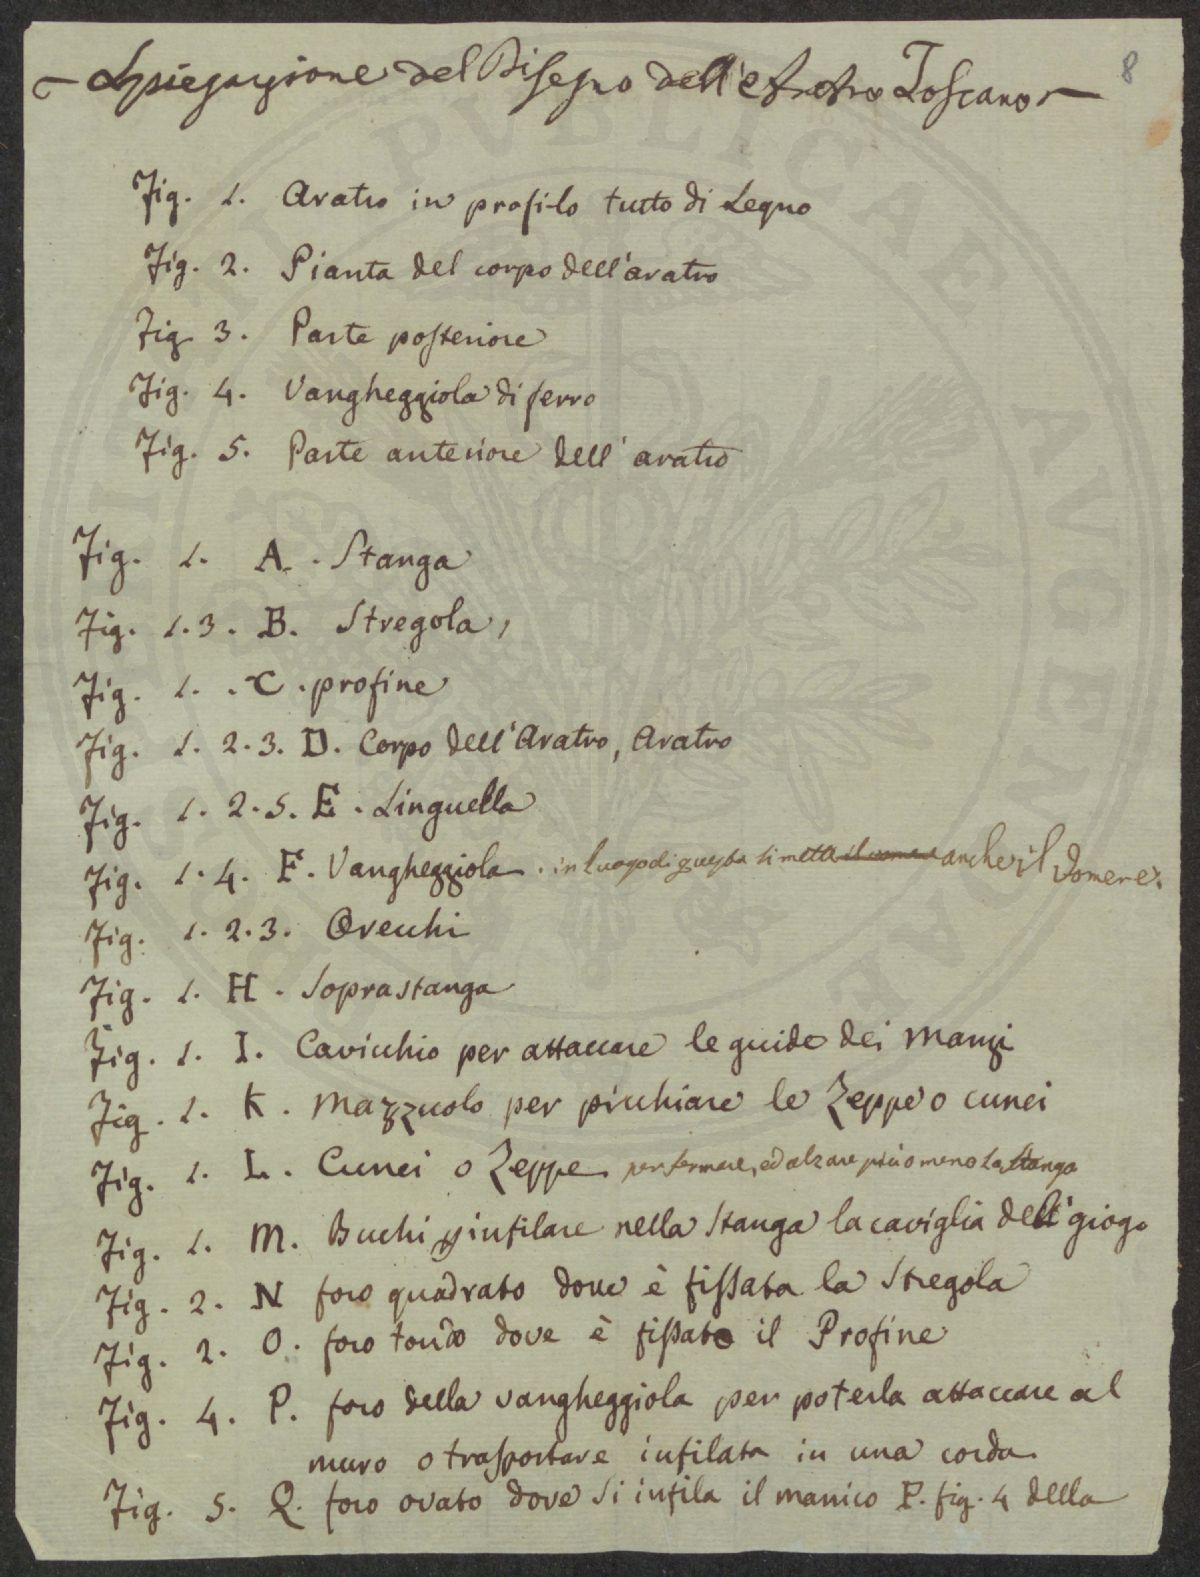 8
Spiegazione del Disegno dell'Aratro Toscano
Fig. 1. Aratro in profilo tutto di Legno
Fig. 2. Pianta del corpo dell'aratro
Fig. 3. Parte posteriore
Fig. 4. Vangheggiola di ferro
Fig. 5. Parte anteriore dell'aratro
Fig. 1. A. Stanga
Fig. 1.3. B. Stregola,
Fig. 1. . C. profine
Fig. 1. 2. 3. D. Corpo dell'Aratro, Aratro
Fig. 1. 2. 5. E. Linguella
Fig. 1. 4. F. Vangheggiola. in luogo di questa si mette il vomere anche il Vomere.
Fig. 1. 2. 3. Orecchi
Fig. 1. H. Soprastanga
Fig. 1. I. Cavicchio per attaccare le guide dei Manzi
Fig. 1. K. Mazzuolo per picchiare le Zeppe o cunei
Fig. 1. L. Cunei o Zeppe per fermare, ed alzare più o meno la Stanga
Fig. 1. M. Buchi infilare nella Stanga la caviglia del giogo
Fig. 2. N foro quadrato dove è fissata la Stregola
Fig. 2. O. foro tondo dove è fissato il Profine
Fig. 4. P. foro della vangheggiola per poterla attaccare al
muro o trasportare infilata in una corda
Fig. 5. Q. foro ovato dove si infila il manico P. fig. 4 della
PVBLICAE AVGVSTAE